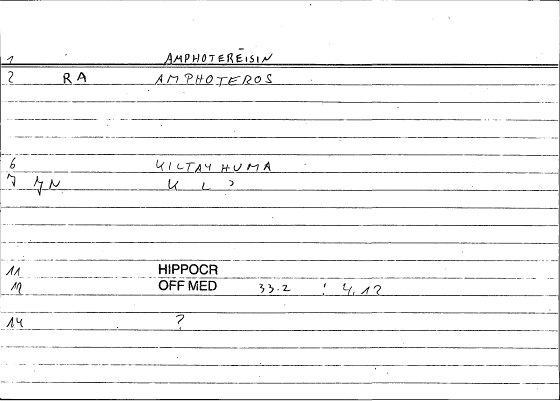 1 AMPHOTERĒISIN
2 RA AMPHOTEROS
6 KILTAY HUMA
7 JN K L ?
11 HIPPOCR
12 OFF MED 33.2 : 4.12
14 ?